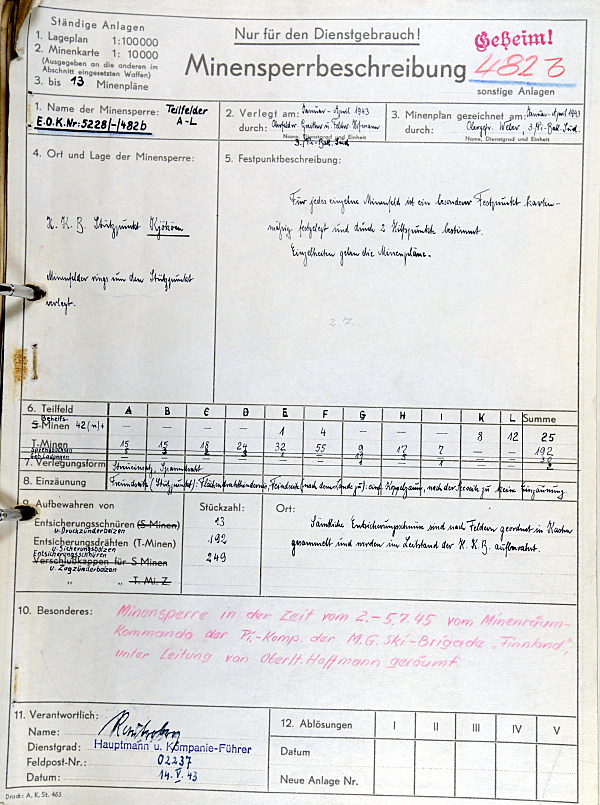 Ständige Anlagen
1. Lageplan 1:100000
2. Minenkarte 1: 10000
(Ausgegeben an die anderen im
Abschnitt eingesetzten Waffen)
3. bis 13 Minenpläne
Nur für den Dienstgebrauch!
Minensperrbeschreibung
Geheim!
482 b
sonstige Anlagen
1. Name der Minensperre: Teilfelder
A-L
E.O.K.Nr:5228/-/482b
2. Verlegt am: Januar - April 1943
durch:
Name, Dienstgrad und Einheit
3./Pi-Batl. Süd.
3. Minenplan gezeichnet am: Januar-April 1943
durch: Obergefr. Weler, 3./Pi-Batl. Süd.
Name, Dienstgrad und Einheit
4. Ort und Lage der Minensperre:
H. K. B. Stützpunkt Kjököen
Minenfelder rings um den Stützpunkt
verlegt.
5. Festpunktbeschreibung:
Für jedes einzelne Minenfeld ist ein besonderer Festpunkt karten-
mäßig festgelegt und durch 2 Hilfspunkte bestimmt.
Einzelheiten geben die Minenpläne.
6. Teilfeld A B C D E F G H I K L Summe
Behelfs-
S-Minen 42(n)+ — — — — 1 4 — — — 8 12 25
T-Minen 15 15 18 24 32 55 9 17 7 192
7. Verlegungsform Streueinsatz, Spanndraht
8. Einzäunung
9. Aufbewahren von Stückzahl: Ort:
Entsicherungsschnüren (S-Minen) 13
u. Druckzünderbolzen
Entsicherungsdrähten (T-Minen) 192
u. Sicherungsbolzen
Entsicherungsschnüren
Verschlußkappen für S Minen 249
u. Zugzünderbolzen
„ „ T. Mi. Z.
Sämtliche Entsicherungsschnüre sind nach Feldern geordnet in Kasten
gesammelt und werden im Leitstand der H. K. B. aufbewahrt.
10. Besonderes: Minensperre in der Zeit vom 2.-5.7.45 vom Minenräum-
Kommando der Pi.-Komp. der M.G. Ski-Brigade „Finnland",
unter Leitung von Oberlt. Hoffmann geräumt.
11. Verantwortlich:
Name:
Dienstgrad: Hauptmann u. Kompanie-Führer
Feldpost-Nr.: 02237
Datum: 14. V. 43
12. Ablösungen I II III IV V
Datum
Neue Anlage Nr.
Druck: A. K. St. 463